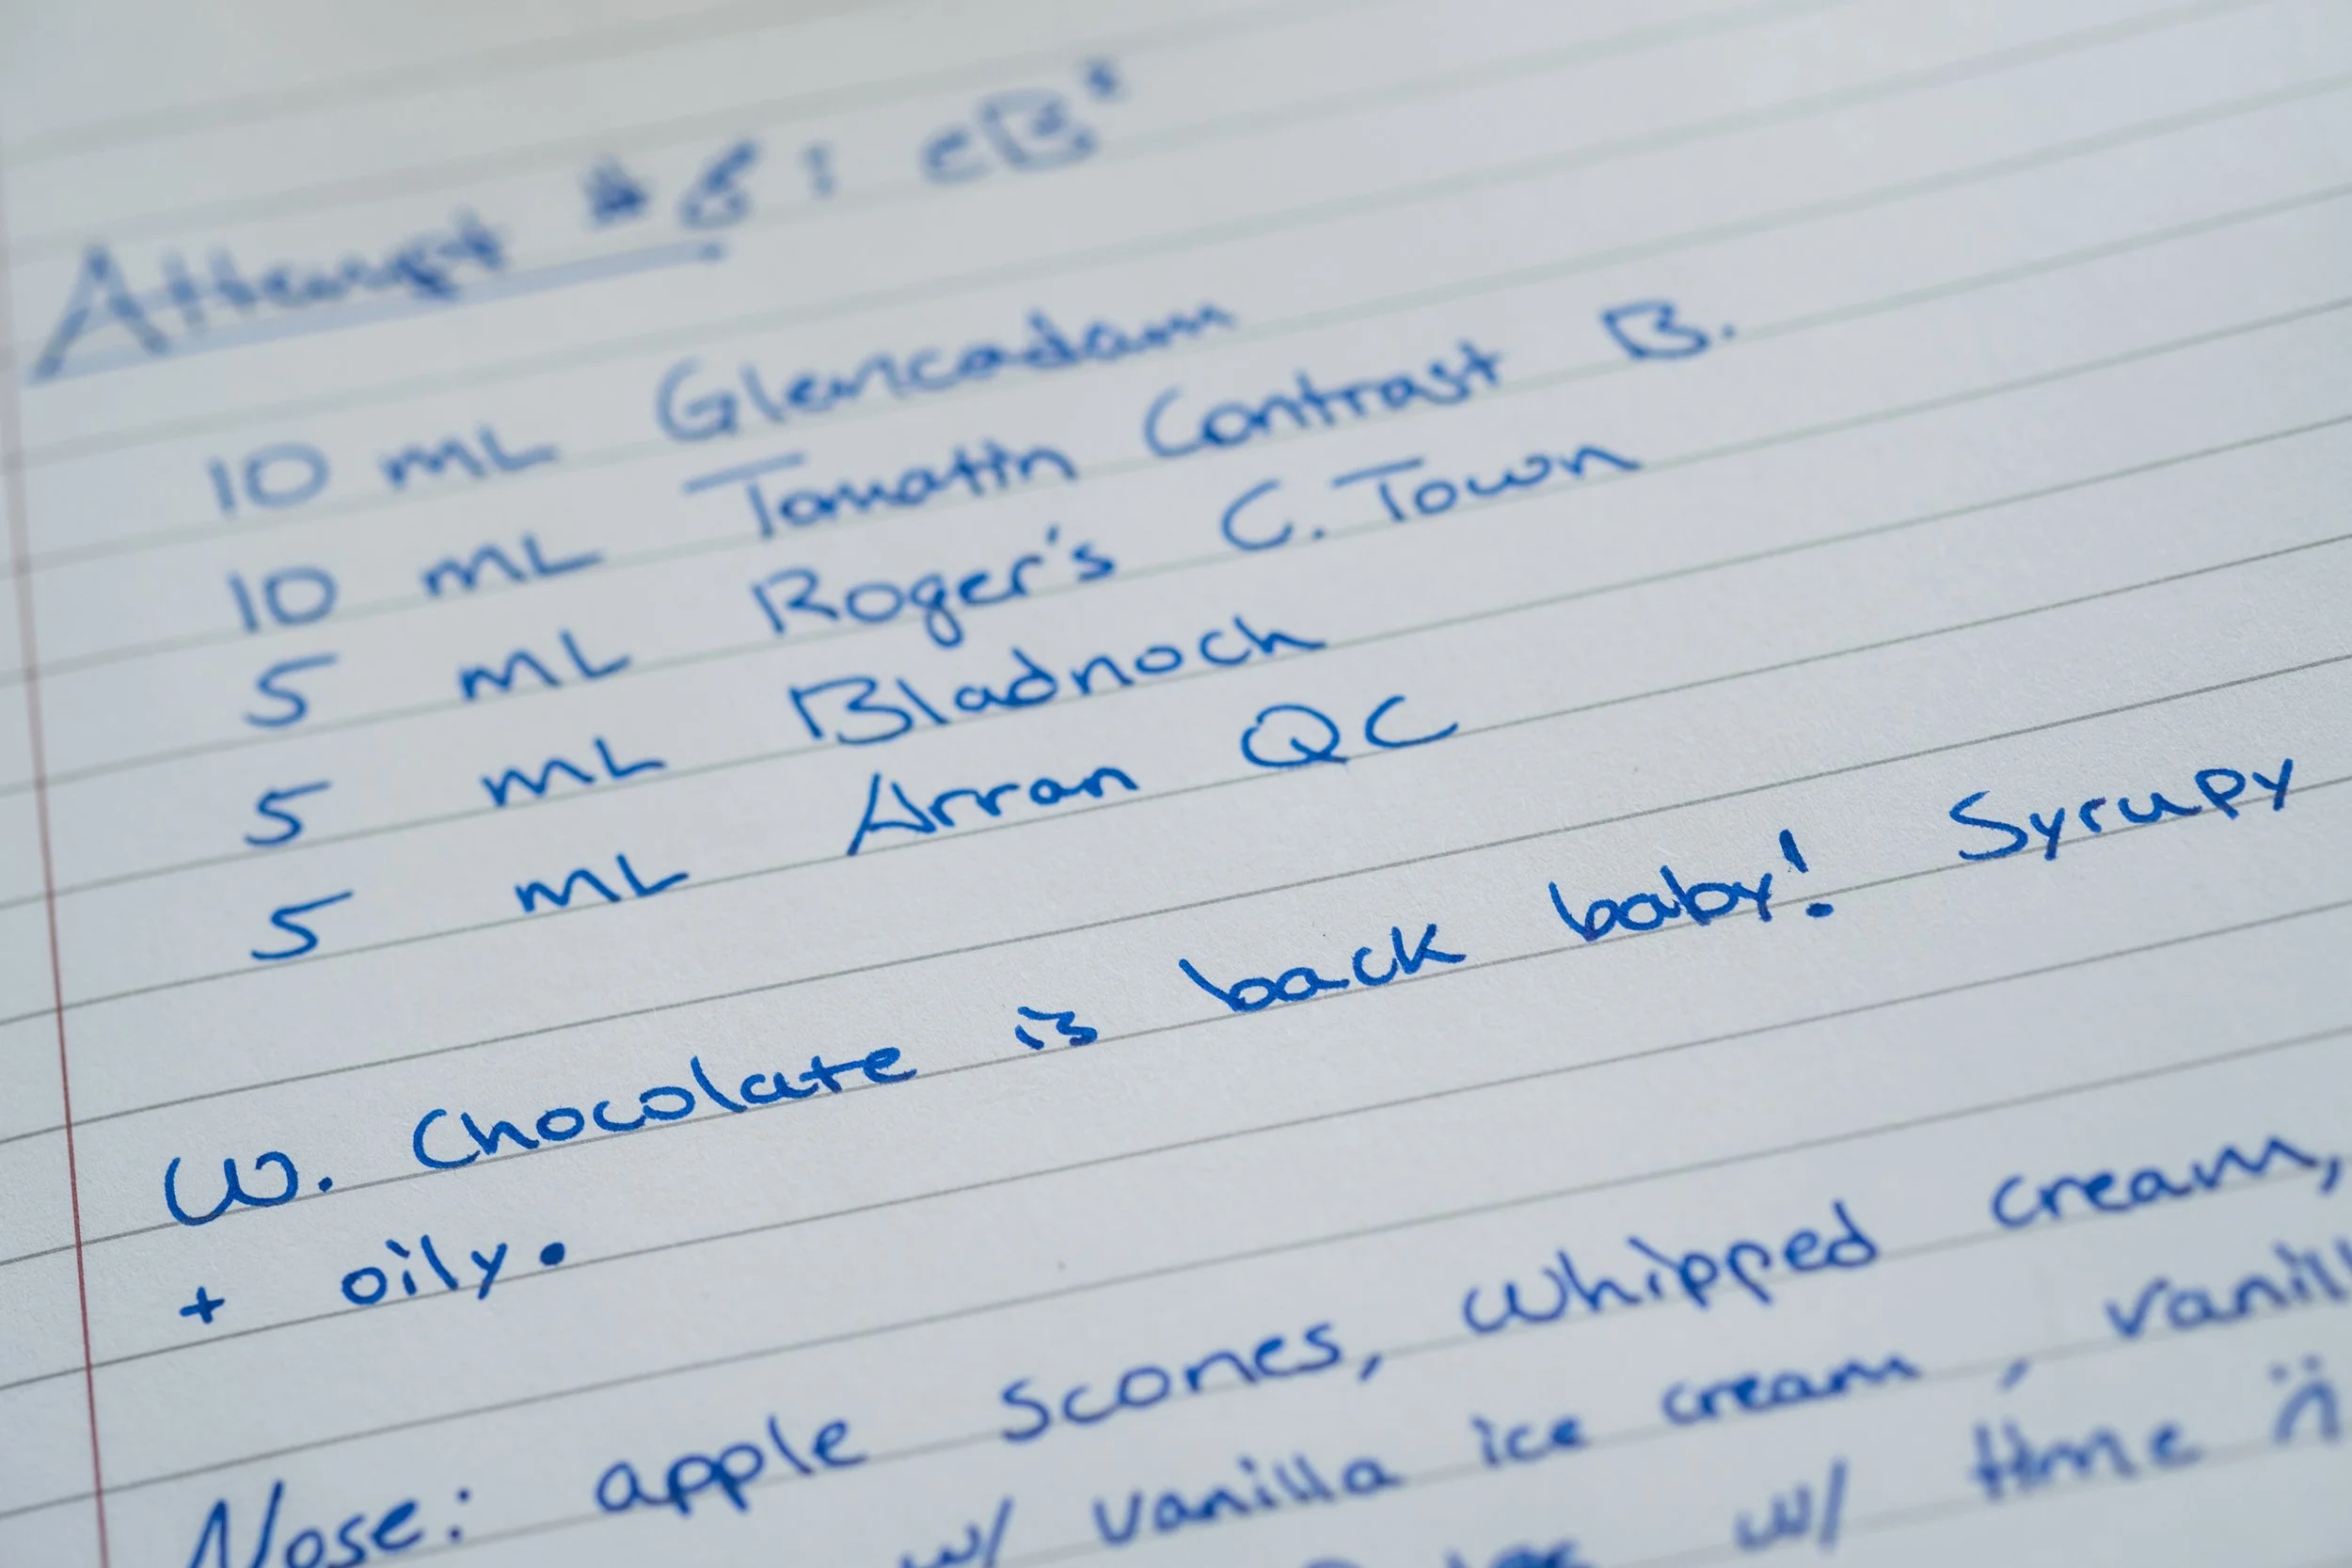 Attempt #8: eB
10 mL Glencadam
10 mL Tomatin Contrast B.
5 mL Roger's C. Town
5 mL Bladnoch
5 mL Arran QC
W. Chocolate is back baby! Syrupy
+ oily.
Nose: apple scones, whipped cream,
w/ vanilla ice cream,
w/ time